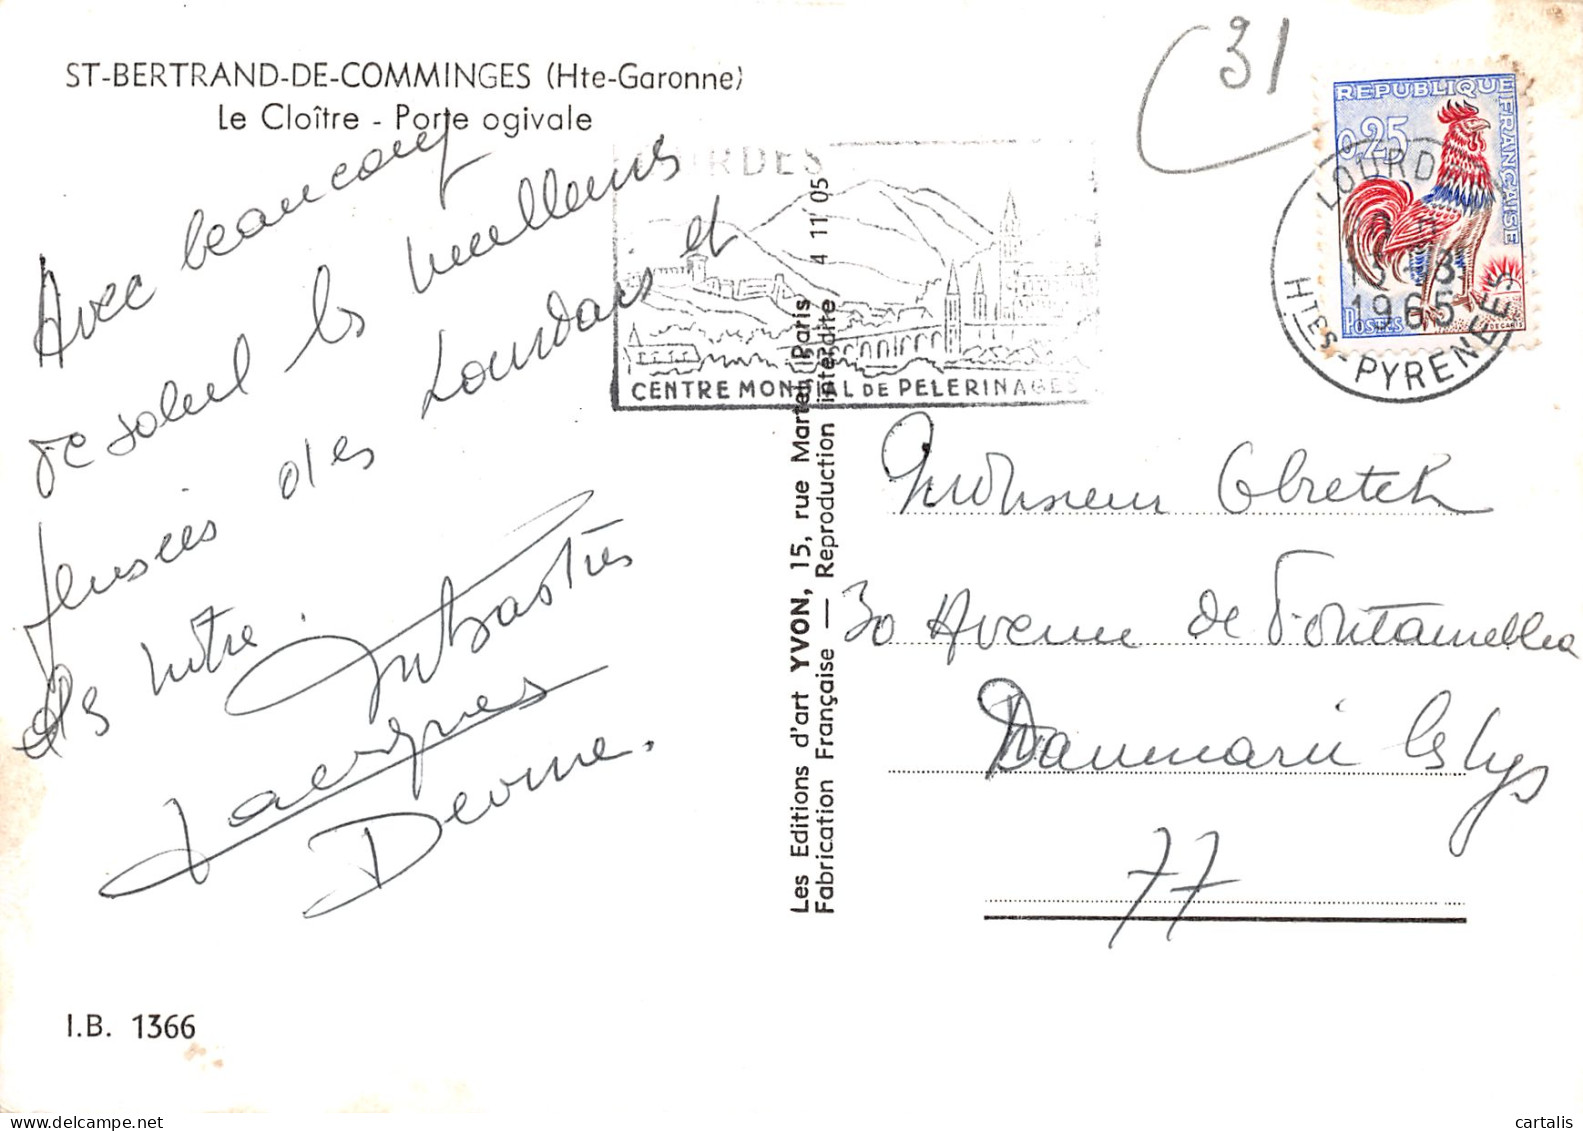 ST-BERTRAND-DE-COMMINGES (Hte-Garonne)
Le Cloître - Porte ogivale
Avec beaucoup
de soleil les meilleures
pensées des Lourdais et
des notre.
Jacques
31
REPUBLIQUE FRANÇAISE
0,25
POSTES
DECARIS
LOURDES
13-8
1965
HTES PYRENEES
CENTRE MONDIAL DE PELERINAGES
Les Editions d'art YVON, 15, rue Martel, Paris 4 11 05
Fabrication Française — Reproduction interdite
Monsieur
30 Avenue de Fontainebleau
Dammarie les Lys
77
I.B. 1366
cartalis
www.delcampe.net